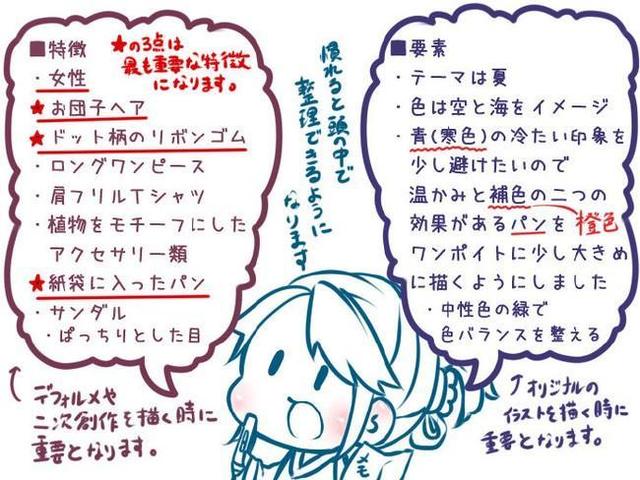 ■特徴
★の3点は
最も重要な特徴
になります。
・女性
★お団子ヘア
★ドット柄のリボンゴム
・ロングワンピース
・肩フリルTシャツ
・植物をモチーフにした
アクセサリー類
★紙袋に入ったパン
・サンダル
・ぱっちりとした目
慣れると頭の中で
整理できるように
なります
■要素
・テーマは夏
・色は空と海をイメージ
・青(寒色)の冷たい印象を
少し避けたいので
温かみと補色の二つの
効果があるパンを
橙色
ワンポイトに少し大きめ
に描くようにしました
・中性色の緑で
色バランスを整える
デフォルメや
二次創作を描く時に
重要となります。
オリジナルの
イラストを描く時に
重要となります。
メモ